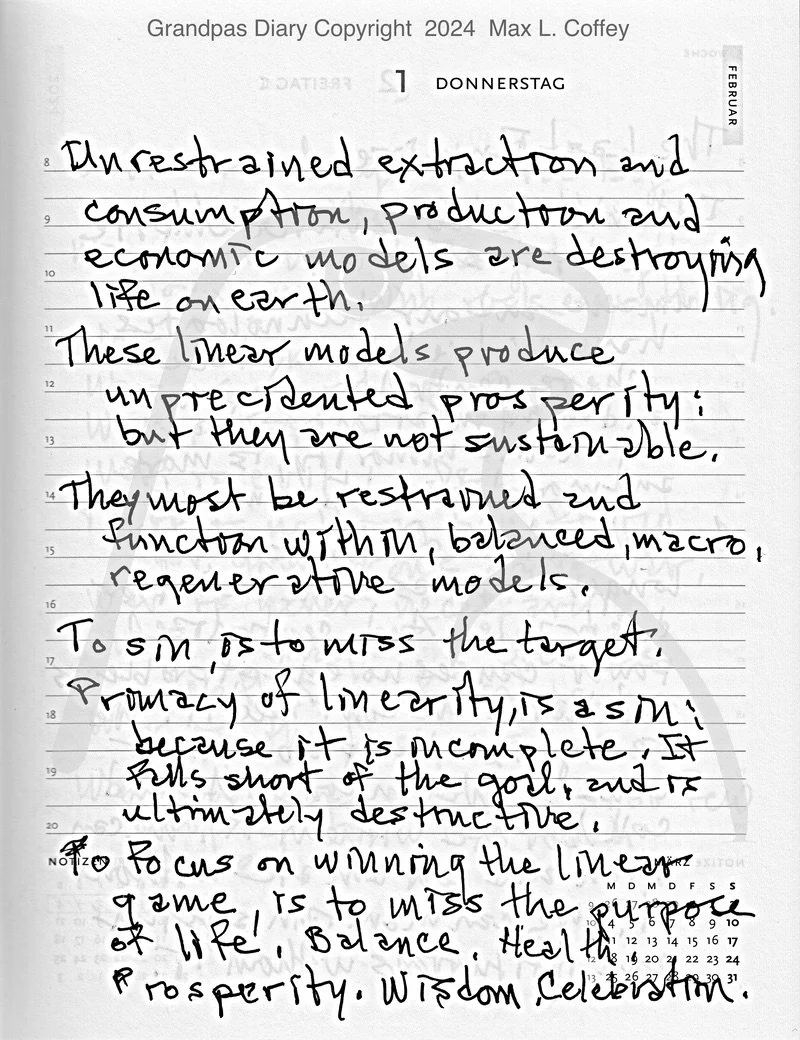 Grandpas Diary Copyright 2024 Max L. Coffey
1 DONNERSTAG
FEBRUAR
8 Unrestrained extraction and
9 consumption, production and
economic models are destroying
10 life on earth.
11 These linear models produce
12 unprecidented prosperity;
13 but they are not sustainable.
14 They most be restrained and
15 function within, balanced, macro,
regenerative models.
16
To sin, is to miss the target.
17
Primacy of linearity, is a sin;
18 because it is incomplete. It
19 falls short of the goal, and is
ultimately destructive.
20
NOTIZEN
To Focus on winning the linear
MÄRZ
M D M D F S S
game, is to miss the purpose
of life! Balance. Health.
4 5 6 7 8 9 10
11 12 13 14 15 16 17
18 19 20 21 22 23 24
Prosperity. Wisdom. Celebration.
25 26 27 28 29 30 31